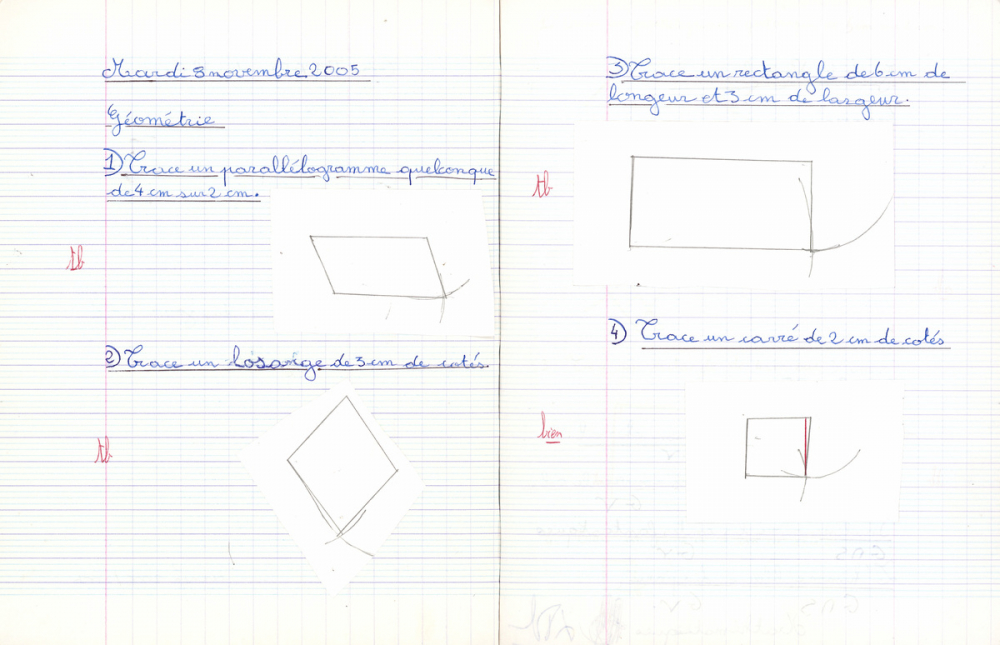 Mardi 8 novembre 2005
Géométrie
1) Trace un parallélogramme quelconque
de 4 cm sur 2 cm.
tb
2) Trace un losange de 3 cm de cotés.
tb
3) Trace un rectangle de 6 cm de
longeur et 3 cm de largeur.
tb
4) Trace un carré de 2 cm de cotés
bien